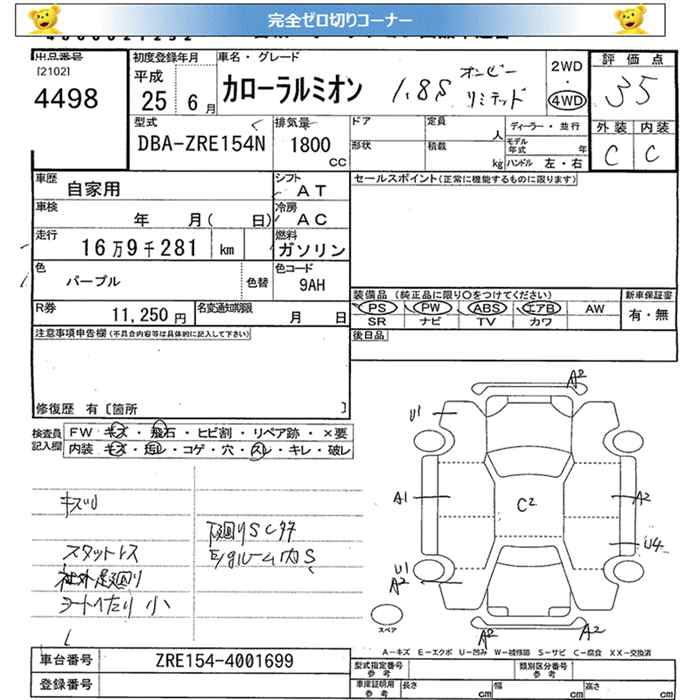 完全ゼロ切りコーナー
出品番号
[2102]
4498
初度登録年月
平成
25 6月
車名・グレード
カローラルミオン 1.8S オンビーリミテッド
2WD
・
4WD
評価点
35
外装 内装
C C
型式
DBA-ZRE154N
排気量
1800
CC
ドア
形状
定員
人
積載
kg
ディーラー・並行
モデル年式 年
ハンドル 左・右
車歴 自家用
シフト AT
車検 年 月( 日)
冷房 AC
走行 16万9千281 km
燃料 ガソリン
色 パープル 色替
色コード 9AH
R券 11,250円
名変通知期限 月 日
セールスポイント(正常に機能するものに限ります)
装備品(純正品に限り○をつけてください)
PS PW ABS エアB AW
SR ナビ TV カワ
新車保証書
有・無
後日品
注意事項申告欄(不具合内容等は具体的に記入して下さい)
修復歴 有〔箇所 〕
検査員記入欄
FW キズ・飛石・ヒビ割・リペア跡・×要
内装 キズ・汚レ・コゲ・穴・スレ・キレ・破レ
キズU
スタットレス
社外足廻り
シートヘたり 小
下廻りSCサ
E/gルーム内S
A2
U1
A1
C2
A2
U4
U1
A2
A2
A2
スペア
A-キズ E-エクボ U-凹み W-補修跡 S-サビ C-腐食 XX-交換済
車台番号 ZRE154-4001699
登録番号
型式指定番号
参考
類別区分番号
車庫証明用
参考
長さ cm
幅 cm
高さ cm